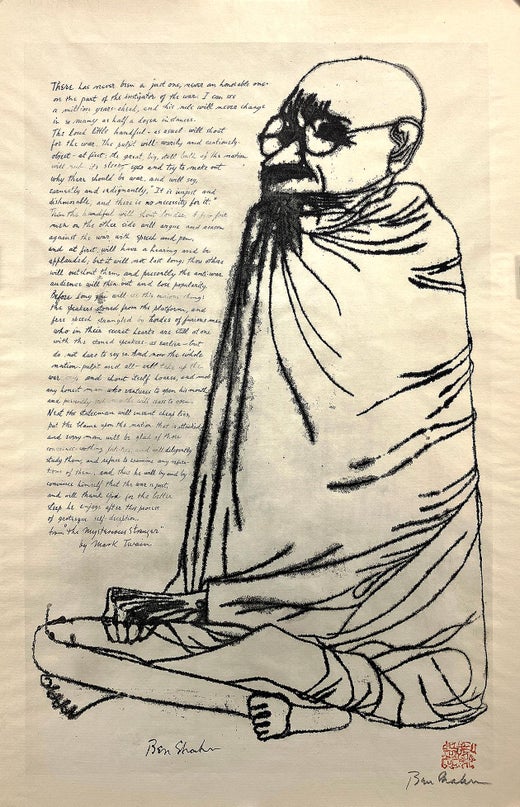 There has never been a just one, never an honorable one-
on the part of the instigator of the war. I can see
a million years ahead, and this rule will never change
in so many as half a dozen instances.
The loud little handful - as usual will shout
for the war. The pulpit will - warily and cautiously -
object - at first; the great, big, dull bulk of the nation
will rub its sleepy eyes and try to make out
why there should be war, and will say,
earnestly and indignantly, "It is unjust and
dishonorable, and there is no necessity for it."
Then the handful will shout louder. A few fair
men on the other side will argue and reason
against the war with speech and pen,
and at first will have a hearing and be
applauded, but it will not last long; those others
will outshout them, and presently the anti-war
audiences will thin out and lose popularity.
Before long you will see this curious thing:
the speakers stoned from the platform, and
free speech strangled by hordes of furious men
who in their secret hearts are still at one
with the stoned speakers as earlier - but
do not dare to say so. And now the whole
nation - pulpit and all - will take up the
war cry, and shout itself hoarse, and mob
any honest man who ventures to open his mouth
and presently such mouths will cease to open.
Next the statesmen will invent cheap lies,
put the blame upon the nation that is attacked
and every man will be glad of those
conscience-soothing falsities, and will diligently
study them, and refuse to examine any refuta-
tions of them; and thus he will by and by
convince himself that the war is just,
and will thank God for the better
sleep he enjoys after this process
of grotesque self-deception.
from "The Mysterious Stranger"
by Mark Twain
Ben Shahn
Ben Shahn